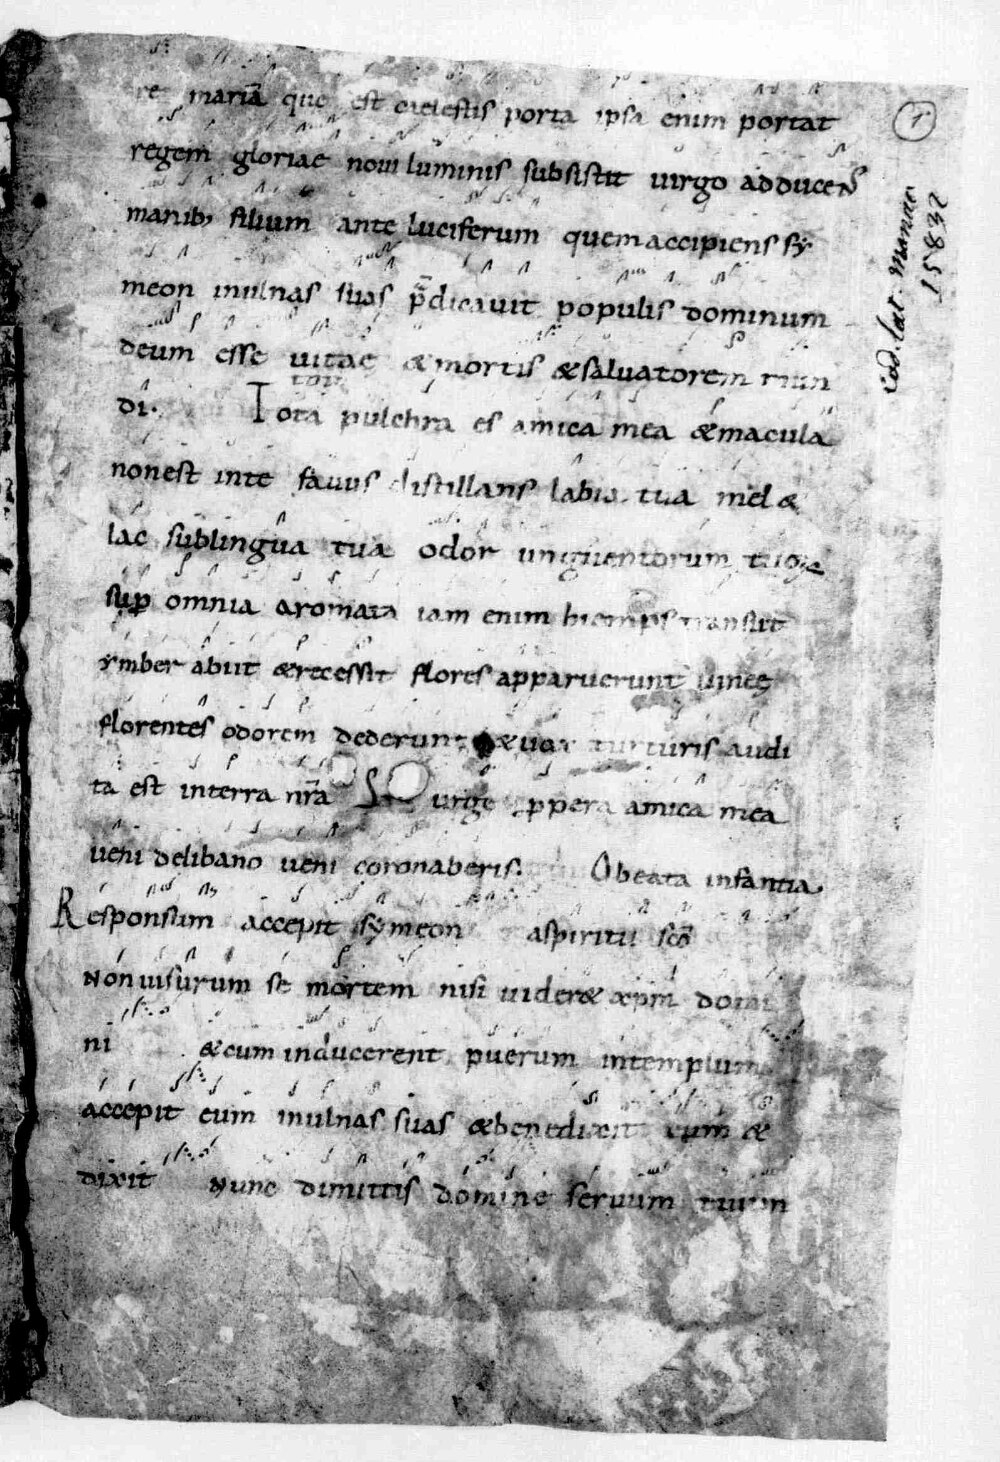 re mariā que est cielestis porta ipsa enim portat
regem gloriae novi luminis subsistit uirgo adducens
manib; filium ante luciferum quem accipiens sy
meon inulnas suas p̄dicauit populis dominum
deum esse uitae & mortis & saluatorem mun
di. Tota pulchra es amica mea & macula
non est inte fauus distillans labia tua mel &
lac sublingua tua odor unguentorum tuoꝝ
sup̱ omnia aromata iam enim hiemps transiit
ymber abiit & recessit flores apparuerunt uineę
florentes odorem dederunt & uox turturis audi
ta est interra nr̄a Surge ꝓpera amica mea
ueni delibano ueni coronaberis. O beata infantia
Responsum accepit symeon aspiritu sc̄o
Non uisurum se mortem nisi uider& xp̄m domi
ni & cum inducerent puerum intemplum
accepit eum inulnas suas & benedixit eum &
dixit Nunc dimittis domine seruum tuum
1
cod. lat. Monac.
15832